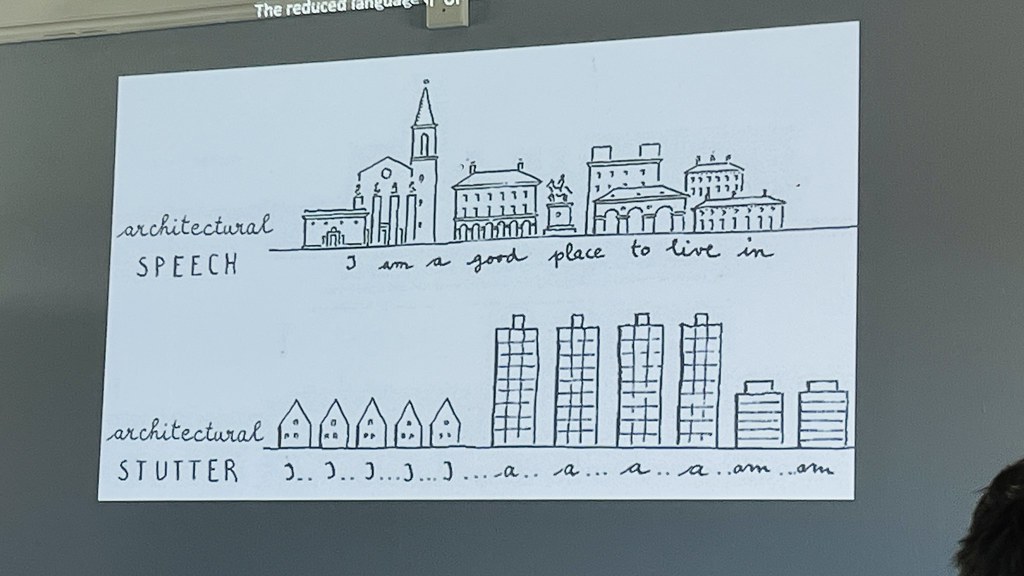 The reduced language
architectural
SPEECH
I am a good place to live in
architectural
STUTTER
I.. I.. I...I...I ....a.. a.... a...a..am ..am